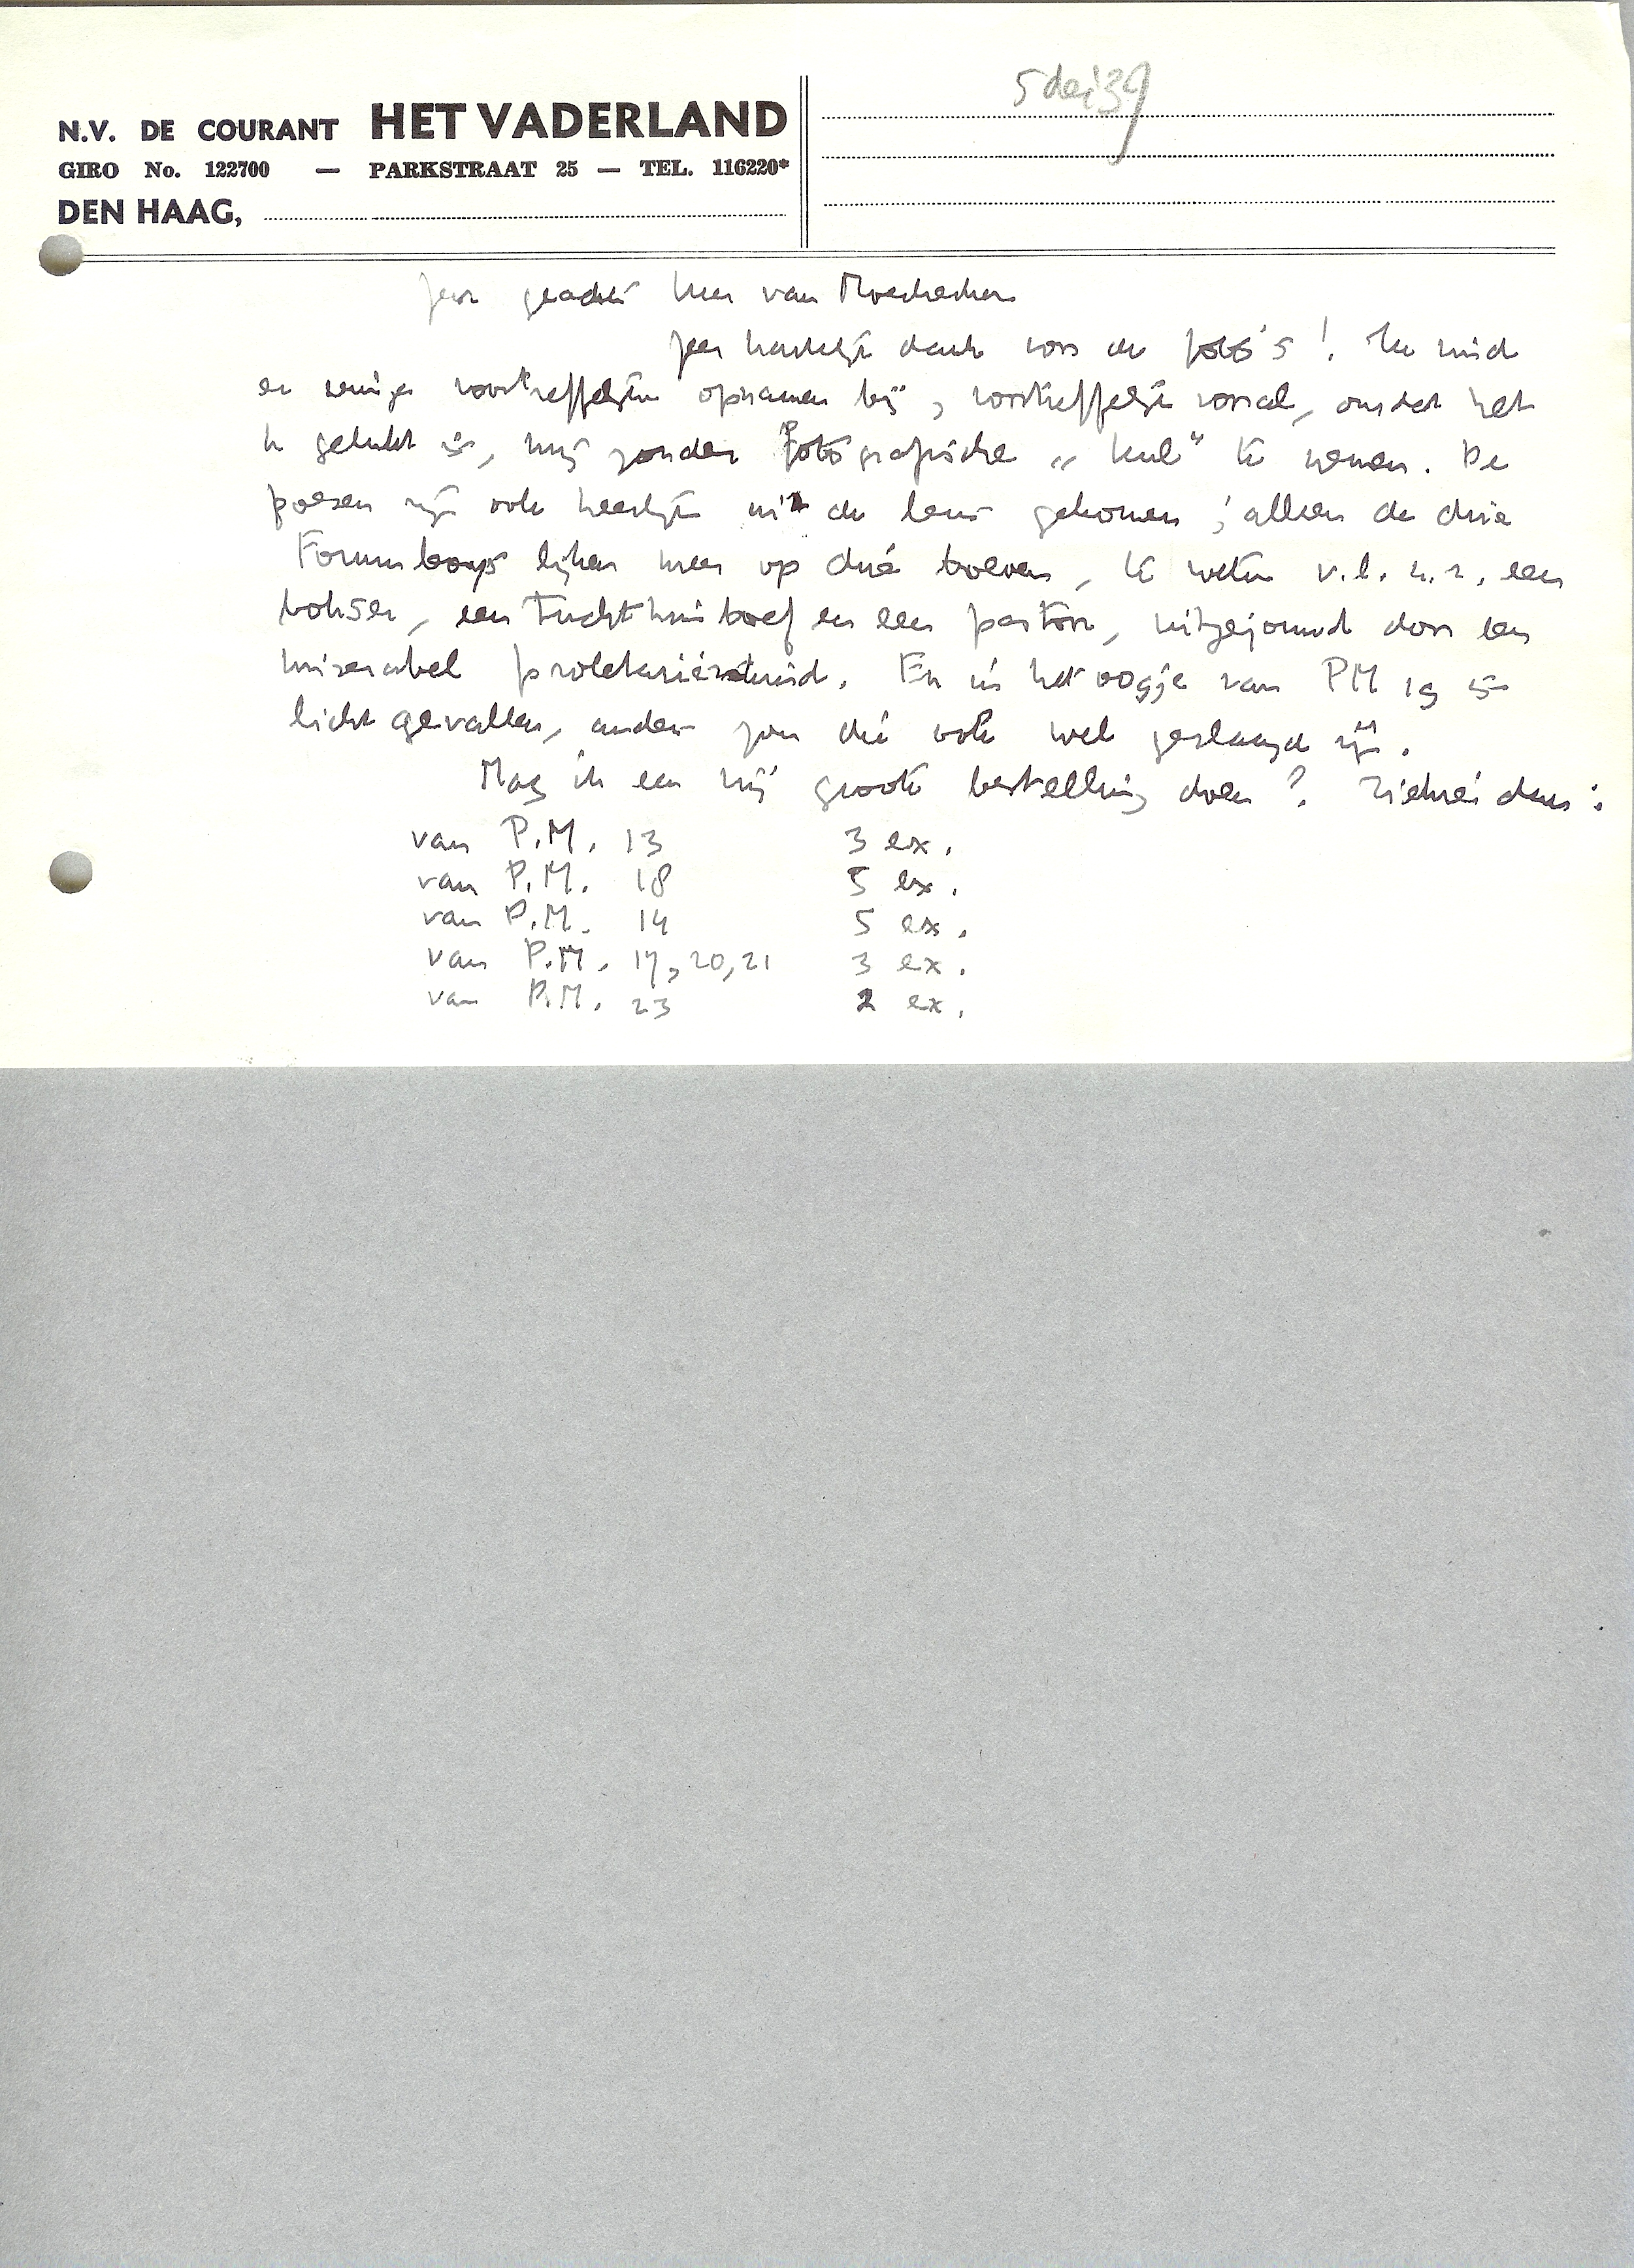 5 dec '39
N.V. DE COURANT HET VADERLAND
GIRO No. 122700 — PARKSTRAAT 25 — TEL. 116220*
DEN HAAG,
Zeer geachte heer van Moerkerken
Zeer hartelijk dank voor de foto's! Ik vind
er eenige voortreffelijke opnamen bij, voortreffelijk vooral, omdat het
U gelukt is, mij zonder fotografische „kul" te nemen. De
poezen zijn ook heerlijk uit de lens gekomen; alleen de drie
Forumboys lijken meer op drie boeven, te weten v.l.n.r. een
bokser, een tuchthuisboef en een pastoor, uitgejouwd door een
miserabel proletariërskind. En in het oogje van PM 19 is
licht gevallen, anders zou die ook wel geslaagd zijn.
Mag ik een vrij groote bestelling doen? Ziehier dan:
van P.M. 13 3 ex.
van P.M. 18 5 ex.
van P.M. 14 5 ex.
van P.M. 17, 20, 21 3 ex.
van P.M. 23 2 ex.